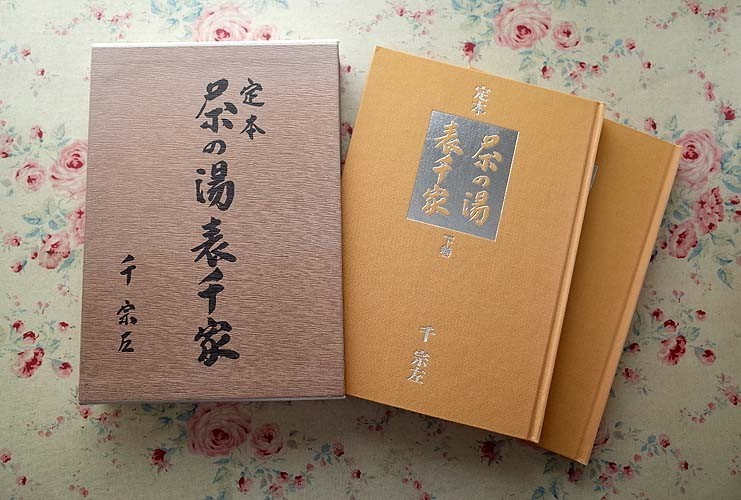 定本
茶の湯表千家
千宗左
定本
茶の湯
表千家
下巻
千宗左